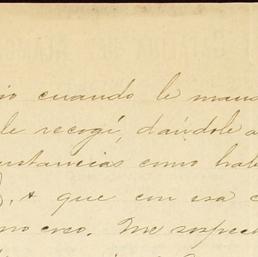 io cuando le mand
le recogí, dándole a
unstancias como hab
, & que con esa c
no creo. Me sospec